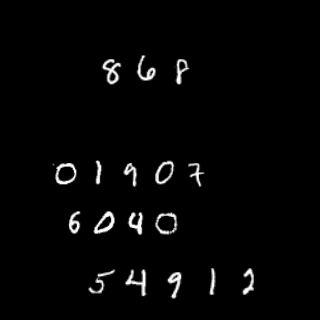 868
01907
6040
54912